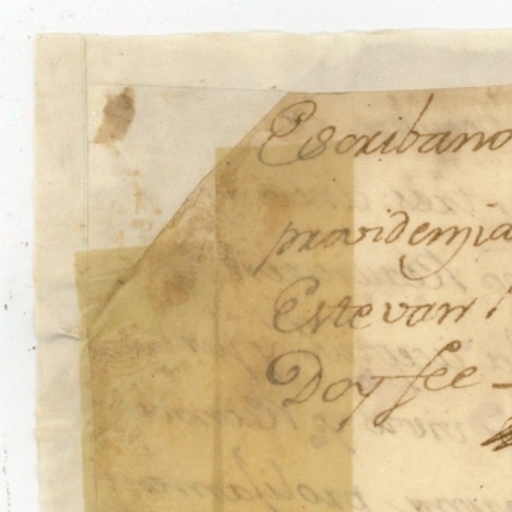 Escribano
providençia
Estevan
Doy fee